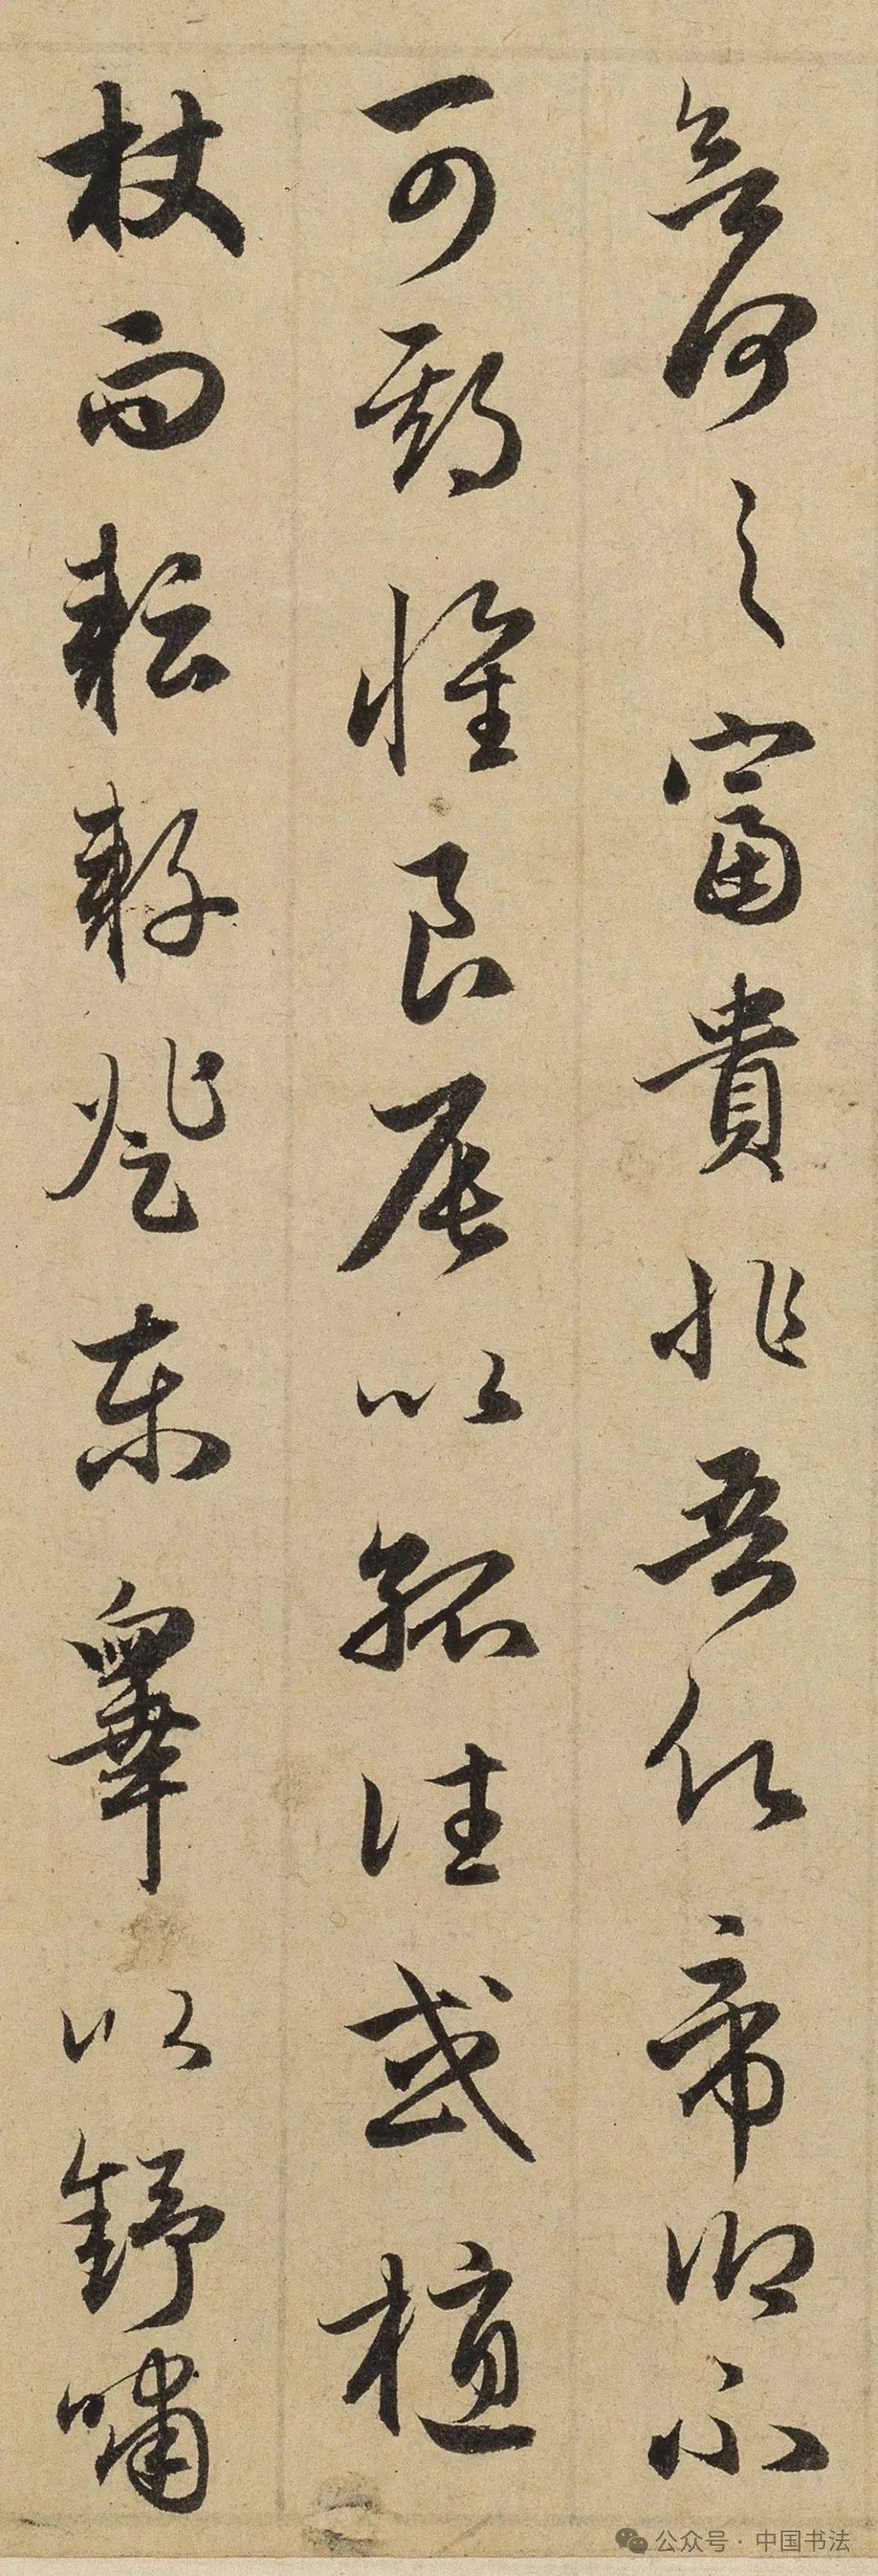 欲何之富貴非吾願帝鄉不
可期惟良辰以孤往或植
杖而耘耔登東皋以舒嘯
公众号 · 中国书法